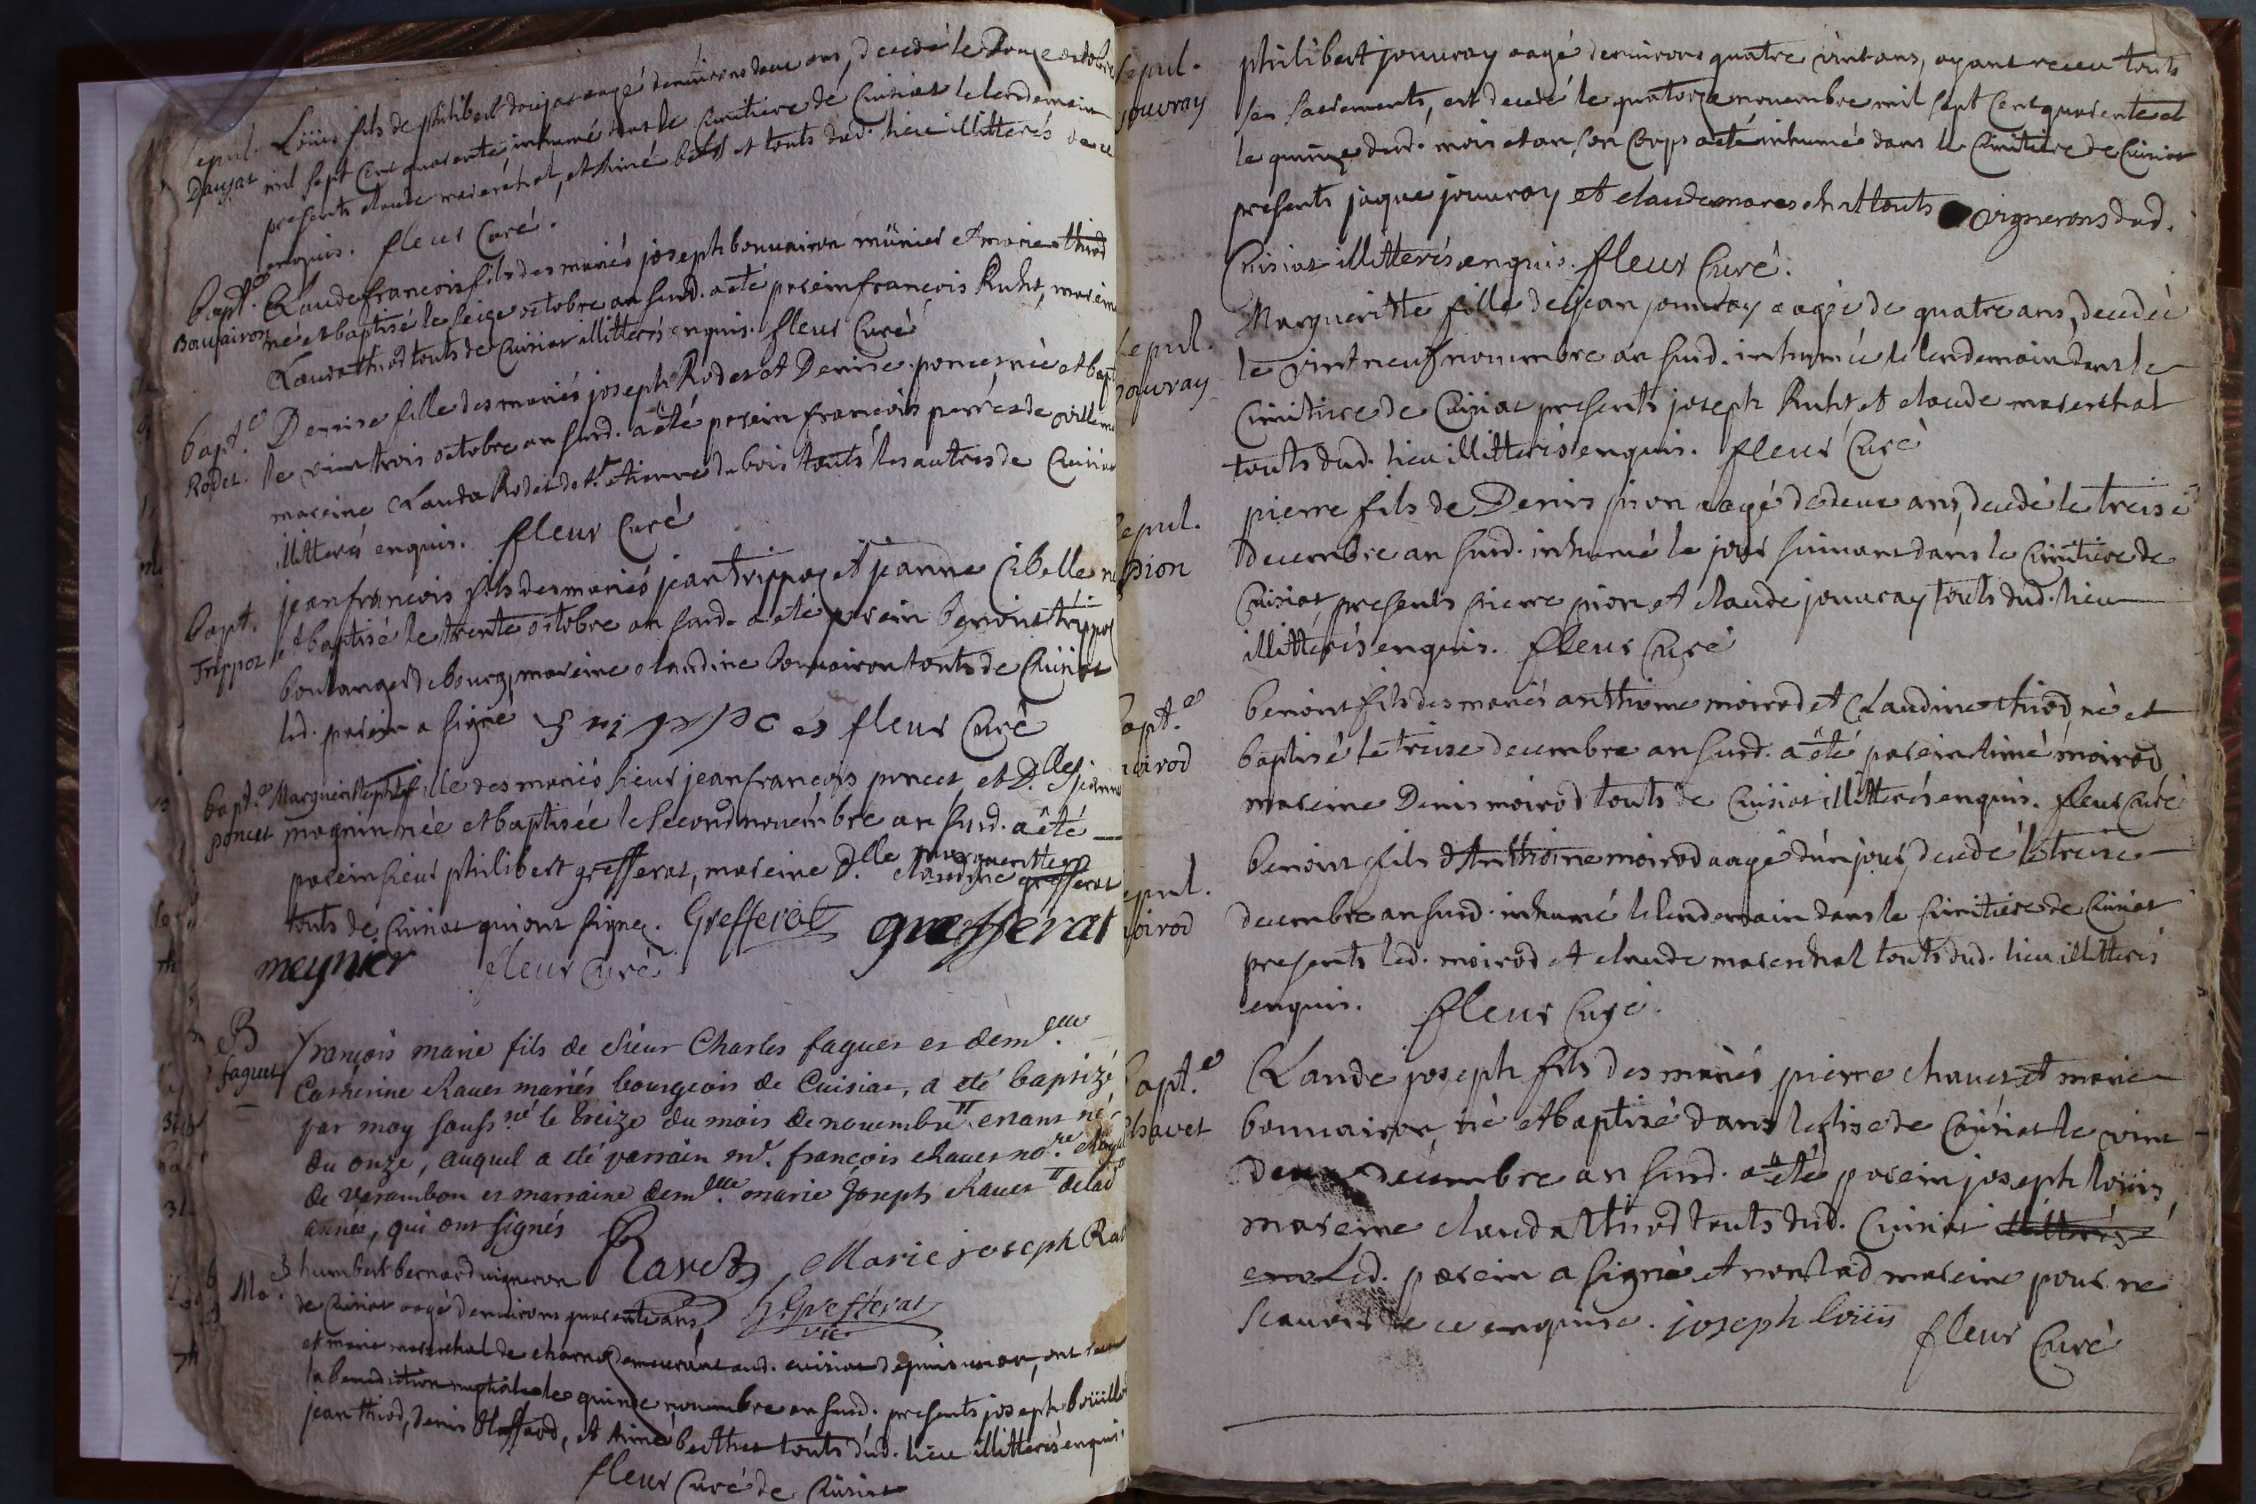 Sepul. Loüis fils de philibert daujat aagé denuirons deux ans, decedé le Douze octobre
Daujat mil sept cent quarente, inhumé dans le Cimitiere de Cuisiat le lendemain
presents claude marerchal, et Aimé et touts dud. lieu illitterés de ce
enquis. fleur Curé.
bapt.e Claude francois fils des mariés joseph bouuairon münier et marie thiod
Bouvairon né et baptisé le seize octobre an susd. a été parein francois Ruht, mareine
Clauda thiod touts de Cuisiat illitterés enquis. fleur Curé
bapt.e Denise fille des mariés joseph Rodet et Denise poncet, née et bapt
Rodet. le vint trois octobre an susd. a été parein francois perret de
mareine Clauda Rodet de st. etienne du bois touts les autres de Cuisiat
illiterés enquis. fleur Curé
bapt. jean francois fils des mariés jean trippoz et jeanne Cibelle né
Trippoz et baptisé le trente octobre an susd. a été parein benoint trippoz
boulanger de bourg, mareine claudine bouuairon touts de Cuisiat
led. parein a signé fleur Curé
bapt.e Margueritte fille des mariés sieur jean francois poncet, et D.lle pierrine
poncet magnin née et baptisée le second nouembre an susd. a été
parein sieur philibert grefferat, mareine D.lle margueritte
claudine grefferat
touts de Cuisiat qui ont signé. Grefferat grefferat
meynier fleur Curé
B françois marie fils de sieur Charles faguet et dem.lle
faguet Catherine Rauet mariés bourgeois de Cuisiat, a eté baptizé
par moy souss.né le treize du mois de nouembre, etant né
du onze, auquel a eté parrain mr. françois Rauet no.re Royal
de varambon et marraine dem.lle marie Joseph Rauet de lad
année, qui ont signés Ravet, Marie joseph Rav
Ma. humbert bernard uigneron
de Cuisiat aagé denuirons quarente ans, Grefferat
vic.
et marie marerchal de charnoz demeurante aud. cuisiat depuis un an, ont receu
la benediction nuptiale le quinze nouembre an susd. presents joseph boüillet
jean thiod, denis , et Aimé berthet touts dud. lieu illitterés enquis.
fleur Curé de Cuisiat
Sepul. philibert jouuray aagé denuirons quatre vint ans, ayant receu touts
jouvray ses sacrements, est decedé le quatorze nouembre mil sept cent quarente et
le quinze dud. mois et an, son Corps a été inhumé dans le Cimitiere de Cuisiat
presents jaque jouuray et claude mareschal touts vignerons dud.
Cuisiat illitterés enquis. fleur Curé.
Sepul. Margueritte fille de jean jouuray aagée de quatre ans, decedée
jouvray le vint neuf nouembre an susd. inhumée le lendemain dans le
Cimitiere de Cuisiat presents joseph Ruht, et claude marerchal
touts dud. lieu illitterés enquis. fleur Curé
Sepul. pierre fils de Denis pion aagé de deux ans, decedé le treise
pion decembre an susd. inhumé le jour suiuant dans le Cimitiere de
Cuisiat, presents pierre pion et claude jouuray touts dud. lieu
illitterés enquis. fleur Curé
bapt.e benoint fils des mariés anthoine moirod et Claudine thiod, né et
moirod baptisé le treise decembre an susd. a été parein Aimé moirod
mareine Denis moirod touts de Cuisiat illitterés enquis. fleur Curé
Sepul. benoint fils d'Anthoine moirod aagé d'un jour, decedé le treise
moirod decembre an susd. inhumé le lendemain dans le Cimitiere de Cuisiat
presents led. moirod et claude marerchal touts dud. lieu illitterés
enquis. fleur Curé.
bapt.e Claude joseph fils des mariés pierre chauet et marie
chavet bouuairon, né et baptisé dans leglise de Cuisiat le vint
deux decembre an susd. a été parein joseph loüis
mareine clauda thiod touts dud. Cuisiat illitterés
enq Led. parein a signé et non lad mareine pour ne
scauoir de ce enquise. joseph loüis
fleur Curé